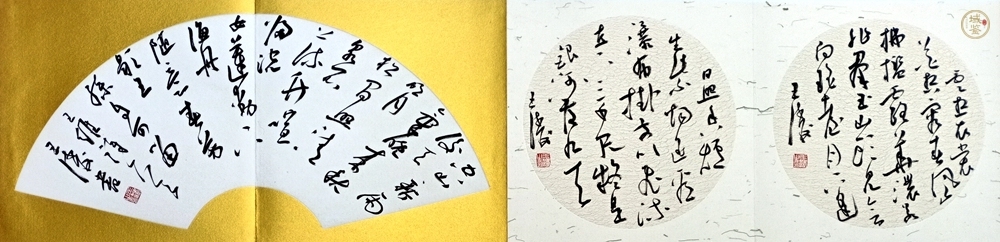 空山新雨
後天气晚来秋
明月松间照清
泉石上流竹
喧归浣
女莲动下
渔舟
随意春芳
歇王孙自可留
王维诗
日照香炉
生紫烟遥看
瀑布挂前川飞流
直下三千尺疑是
银河落九天
云想衣裳
花想容春风
拂槛露华浓若
非群玉山头见会
向瑶台月下逢